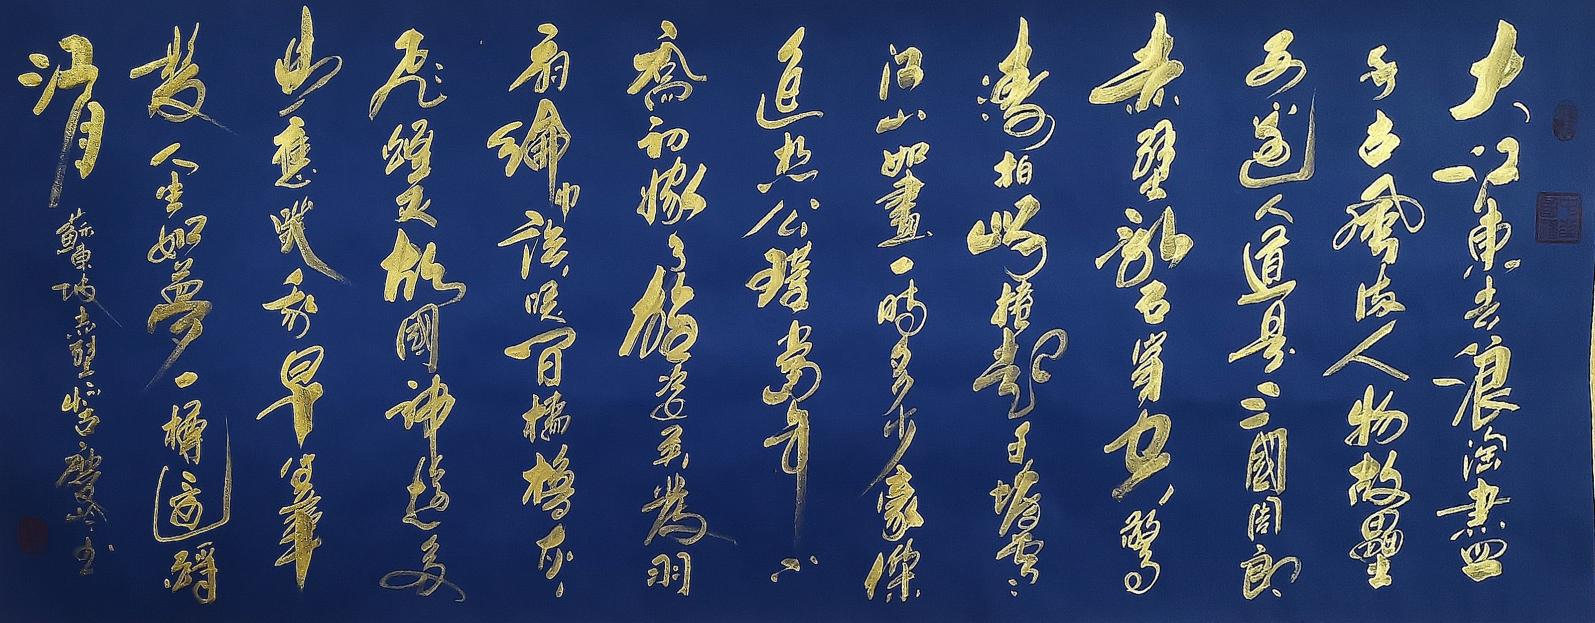 大江東去浪淘盡
千古風流人物故壘
西邊人道是三國周郎
赤壁亂石穿空驚
濤拍岸捲起千堆雪
江山如畫一時多少豪傑
遙想公瑾當年小
喬初嫁了雄姿英發羽
扇綸巾談笑間檣櫓灰
飛煙滅故國神遊多
情應笑我早生華
髮人生如夢一樽還酹
江月
蘇東坡赤壁懷古